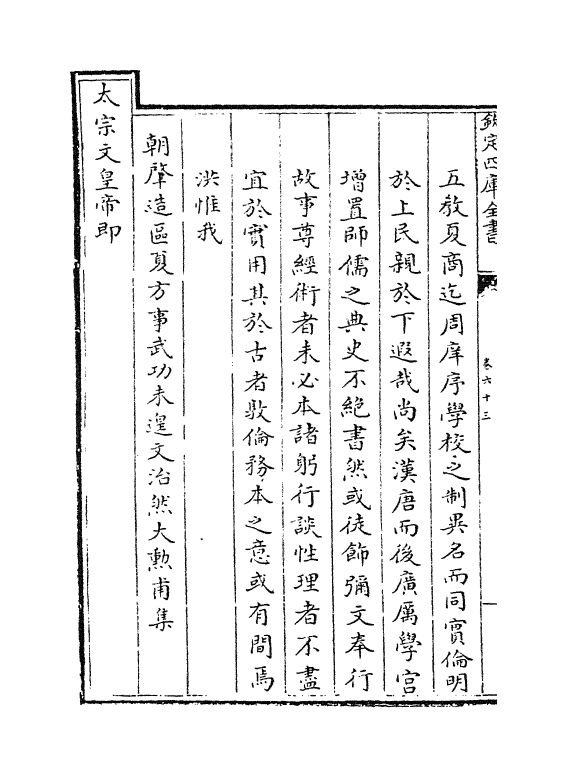 欽定四庫全書
卷六十三
五教夏商迄周庠序學校之制異名而同實倫明
於上民親於下遐哉尚矣漢唐而後廣厲學官
增置師儒之典史不絶書然或徒飾彌文奉行
故事尊經術者未必本諸躬行談性理者不盡
宜於實用其於古者敦倫務本之意或有間焉
洪惟我
朝肇造區夏方事武功未遑文治然大勲甫集
太宗文皇帝即